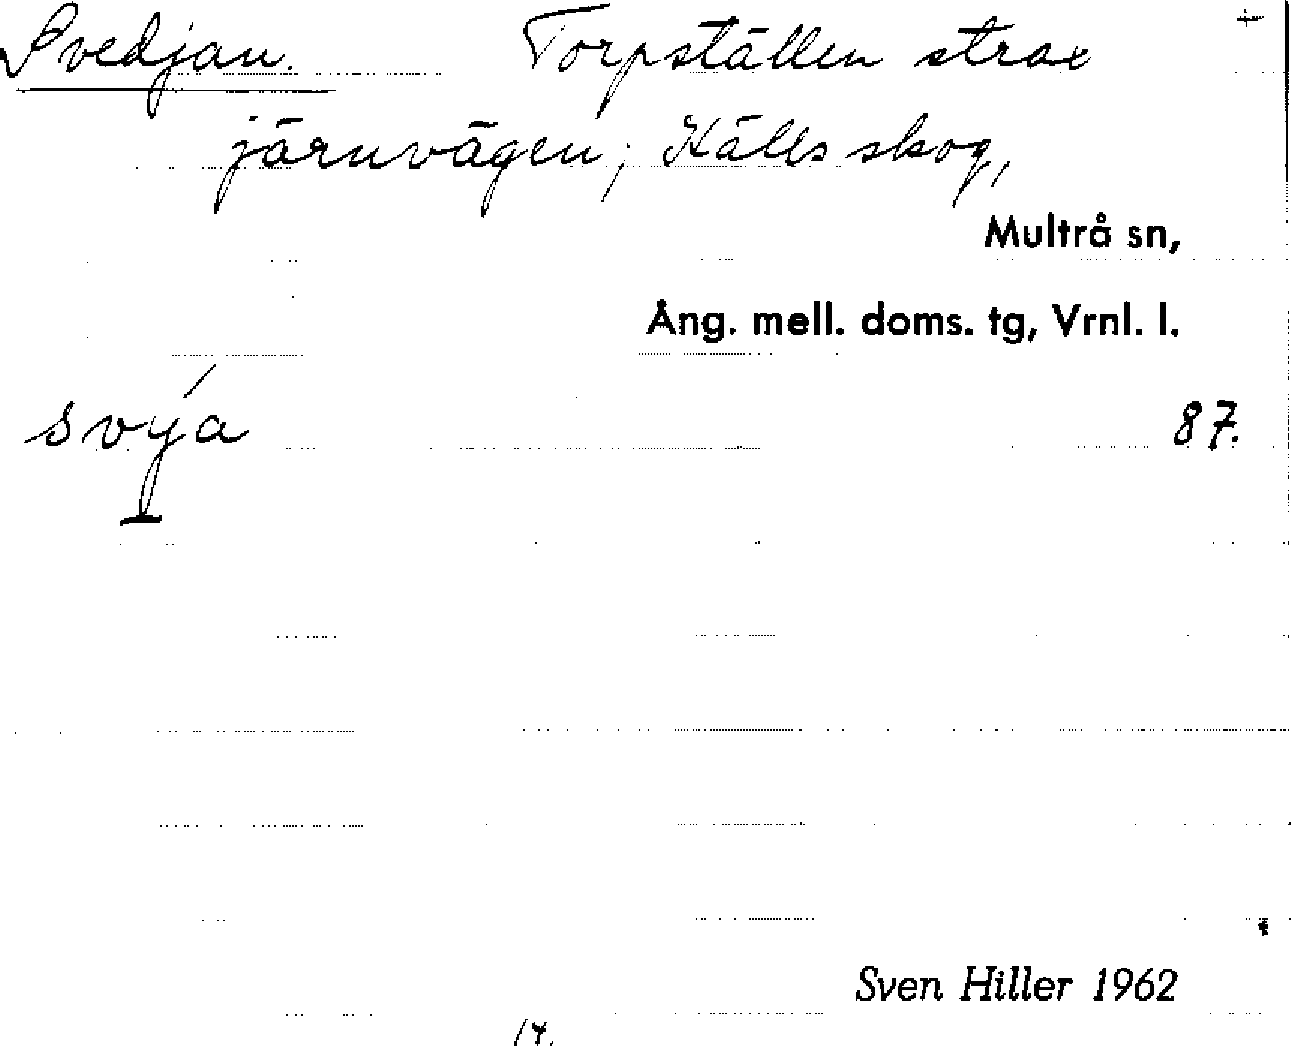 Svedjan. Torpställen strax +
järnvägen; Källs skog,
Multrå sn,
Ång. mell. doms. tg, Vrnl. l.
svýa 87.
Sven Hiller 1962
14.